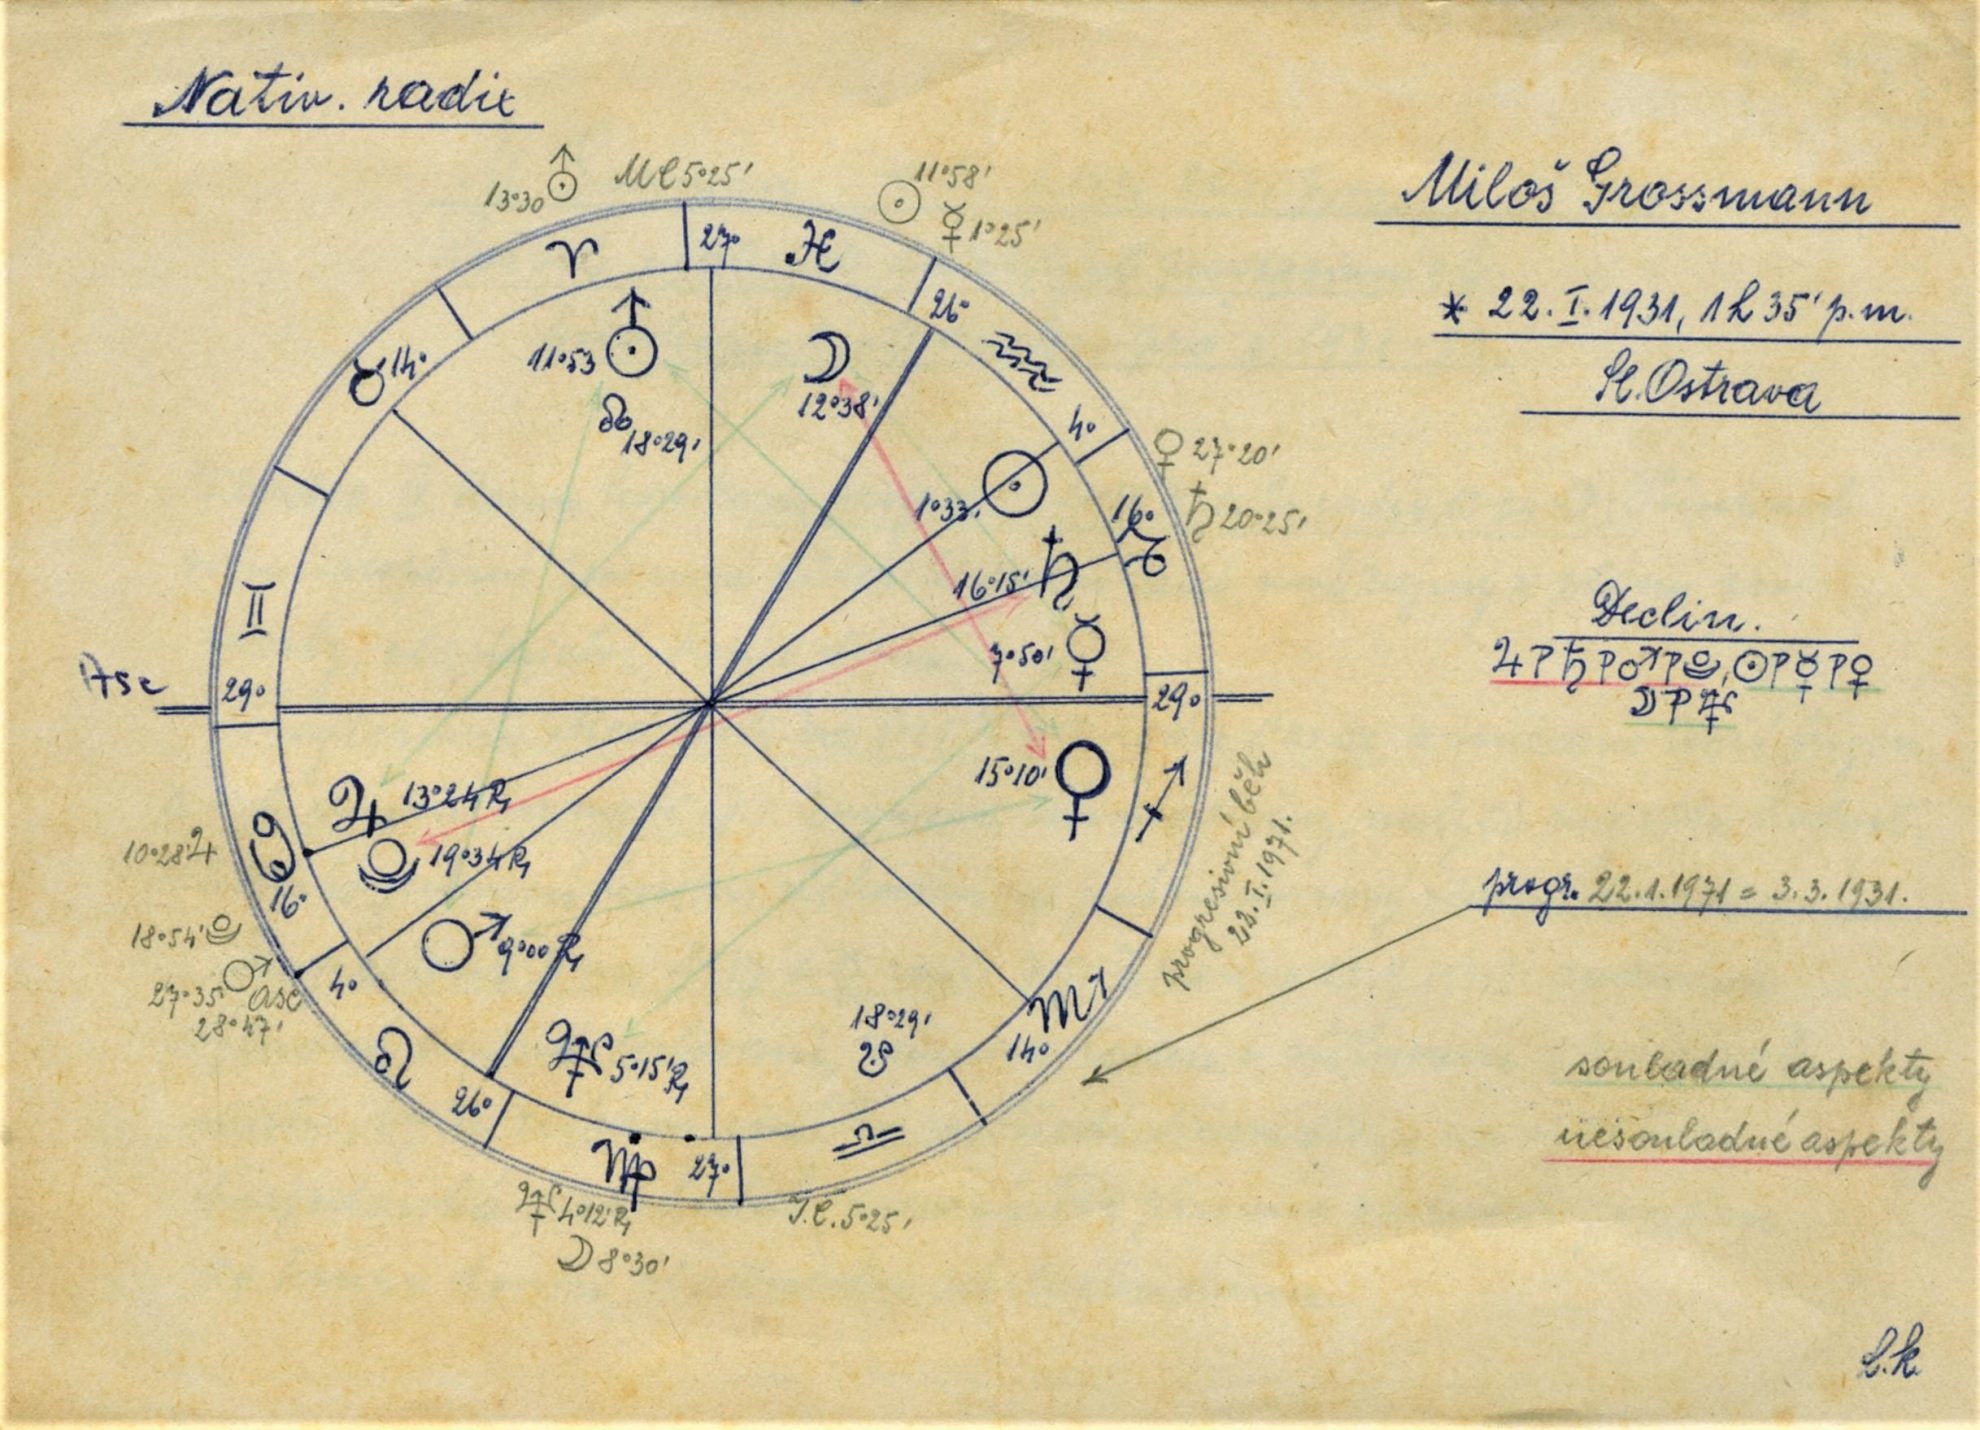 Nativ. radix
Miloš Grossmann
* 22. I. 1931, 1h 35' p.m.
Sl. Ostrava
13°30 ⛢ MC 5°25' ☉ 11°58'
☿ 1°25'
♈ 27° ♓
26°
♒
4°
♉ 14°
⛢ 11°53
☊ 18°29'
☽ 12°38'
☉ 1°33'
♀ 27°20'
♄ 20°25'
16°
♑
♄ 16°15'
☿ 7°50'
♊
Asc
29°
29°
♀ 15°10'
♐
♃ 13°24 R
19°34 R
♂ 9°00 R
♋
16°
10°28' ♃
18°54'
27°35' ♂ asc
28°47'
4°
♌
26°
5°15' R
18°29'
☋
♏
14°
♍ 27°
♎
4°12' R
☽ 8°30'
I.C. 5°25'
Declin.
♃ P ♄ P ♂ P ♇, ☉ P ☿ P ♀
☽ P ♆
progresivní běh
22. I. 1971.
progr. 22.1.1971 = 3.3.1931.
souladné aspekty
nesouladné aspekty
L.k.